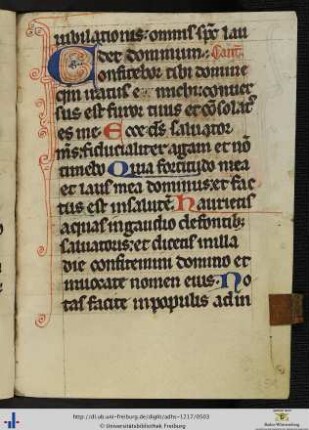 iubilationis: omnis sps lau
det dominum: Cant
Confitebor tibi domine
qm iratus es michi: conver
sus est furor tuus et consolat'
es me Ecce ds salvator
ms: fiducialiter agam et no
timebo Quia fortitudo mea
et laus mea dominus: et fac
tus est in salute Haurietis
aquas in gaudio de fontib;
salvatoris: et dicetis in illa
die confitemini domino et
invocate nomen eius No
tas facite in populis adin
http://dl.ub.uni-freiburg.de/diglit/adhs-1217/0503
© Universitätsbibliothek Freiburg
Baden-Württemberg